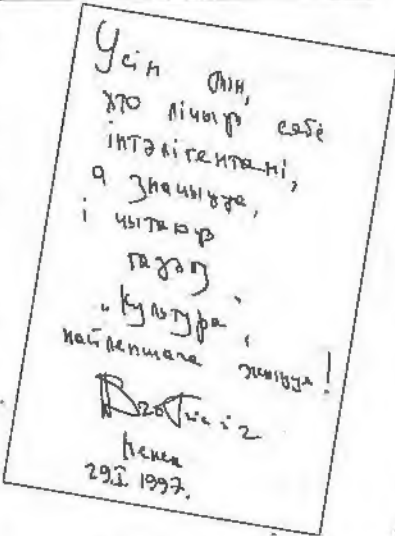 Усім тым,
хто лічыць сябе
інтэлігентамі,
а значыцца,
і чытаюць
газэту
„Культура“,
найлепшага жыцця!
Менск
29.I 1997.